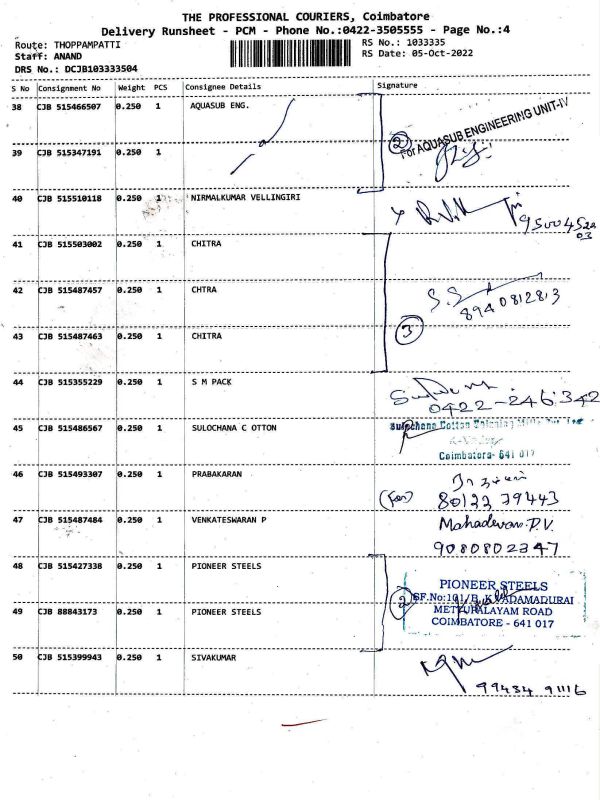 THE PROFESSIONAL COURIERS, Coimbatore
Delivery Runsheet - PCM - Phone No.:0422-3505555 - Page No.:4
Route: THOPPAMPATTI
RS No.: 1033335
Staff: ANAND
RS Date: 05-Oct-2022
DRS No.: DCJB103333504
S No Consignment No Weight PCS Consignee Details Signature
38 CJB 515466507 0.250 1 AQUASUB ENG.
For AQUASUB ENGINEERING UNIT-IV
2
39 CJB 515347191 0.250 1
40 CJB 515510118 0.250 1 NIRMALKUMAR VELLINGIRI
41 CJB 515503002 0.250 1 CHITRA
42 CJB 515487457 0.250 1 CHTRA
8940812813
3
43 CJB 515487463 0.250 1 CHITRA
44 CJB 515355229 0.250 1 S M PACK
0422-246342
45 CJB 515486567 0.250 1 SULOCHANA C OTTON
Sulochana Cotton
Coimbatore- 641 017
46 CJB 515493307 0.250 1 PRABAKARAN
(For) 80122 79443
47 CJB 515487484 0.250 1 VENKATESWARAN P
Mahadevan.P.V.
9080802347
48 CJB 515427338 0.250 1 PIONEER STEELS
PIONEER STEELS
SF.No:101/B, K.VADAMADURAI
2
49 CJB 88843173 0.250 1 PIONEER STEELS
METTUPALAYAM ROAD
COIMBATORE - 641 017
50 CJB 515399943 0.250 1 SIVAKUMAR
99434 91116